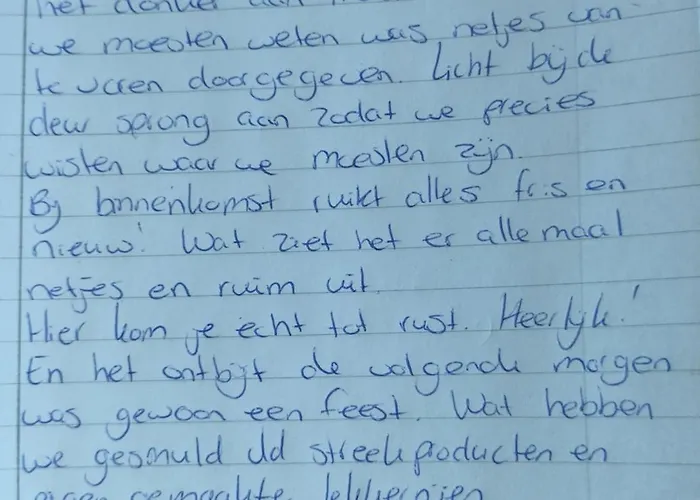 het donker
we moesten weten was netjes van
te voren doorgegeven. Licht bij de
deur sprong aan zodat we precies
wisten waar we moesten zijn.
Bij binnenkomst ruikt alles fris en
nieuw! Wat ziet het er allemaal
netjes en ruim uit.
Hier kom je echt tot rust. Heerlijk!
En het ontbijt de volgende morgen
was gewoon een feest. Wat hebben
we gesmuld vd streekproducten en
eigen gemaakte lekkernijen